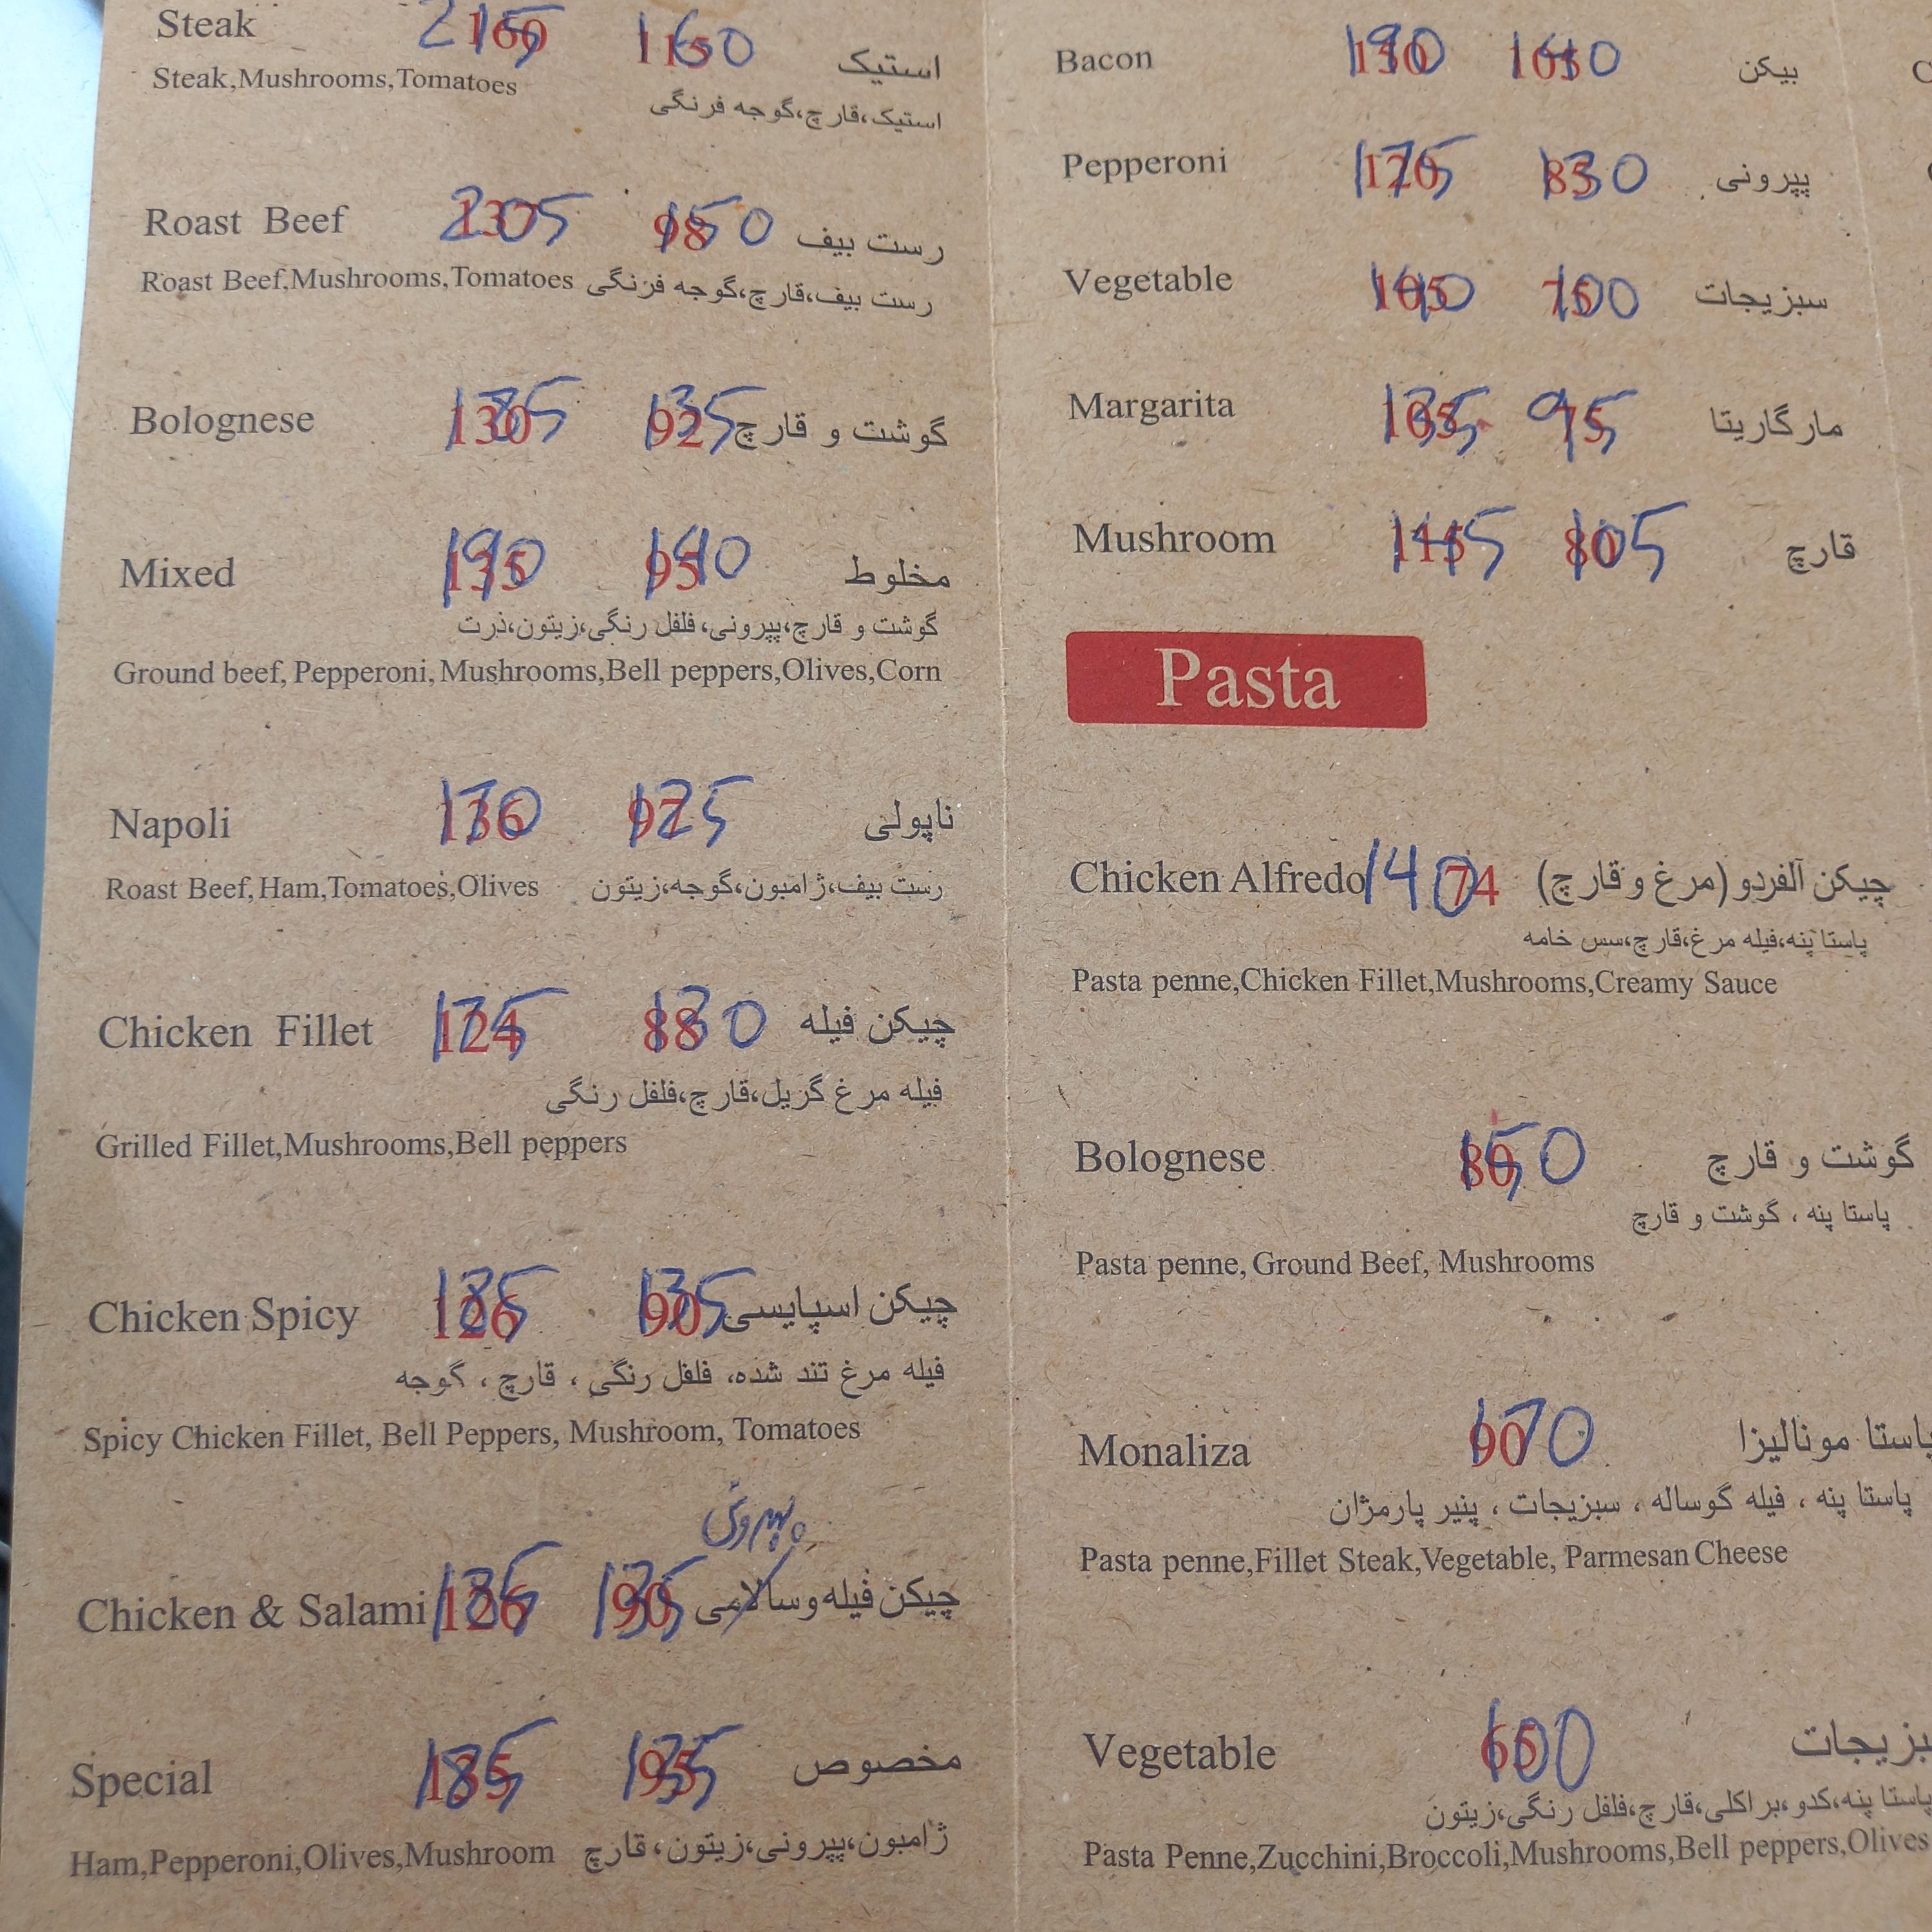 Steak 215 160 استیک
Steak,Mushrooms,Tomatoes
استیک،قارچ،گوجه فرنگی
Roast Beef 205 150 رست بیف
Roast Beef,Mushrooms,Tomatoes رست بیف،قارچ،گوجه فرنگی
Bolognese 130 185 92 135 گوشت و قارچ
Mixed 135 190 95 140 مخلوط
گوشت و قارچ،پپرونی، فلفل رنگی،زیتون،ذرت
Ground beef, Pepperoni, Mushrooms,Bell peppers,Olives,Corn
Napoli 136 170 97 125 ناپولی
Roast Beef,Ham,Tomatoes,Olives رست بیف،ژامبون،گوجه،زیتون
Chicken Fillet 124 175 88 130 چیکن فیله
فیله مرغ گریل،قارچ،فلفل رنگی
Grilled Fillet,Mushrooms,Bell peppers
Chicken Spicy 126 185 90 135 چیکن اسپایسی
فیله مرغ تند شده، فلفل رنگی ، قارچ ، گوجه
Spicy Chicken Fillet, Bell Peppers, Mushroom, Tomatoes
پپرونی
Chicken & Salami 126 185 90 135 چیکن فیله و سالامی
Special 135 185 95 135 مخصوص
Ham,Pepperoni,Olives,Mushroom ژامبون،پپرونی،زیتون، قارچ
Bacon 150 190 105 140 بیکن
Pepperoni 120 175 85 130 پپرونی
Vegetable 105 140 75 100 سبزیجات
Margarita 105 135 75 95 مارگاریتا
Mushroom 115 145 80 105 قارچ
Pasta
Chicken Alfredo 140 74 چیکن آلفردو (مرغ و قارچ)
پاستا پنه،فیله مرغ،قارچ،سس خامه
Pasta penne,Chicken Fillet,Mushrooms,Creamy Sauce
Bolognese 80 150 گوشت و قارچ
پاستا پنه ، گوشت و قارچ
Pasta penne, Ground Beef, Mushrooms
Monaliza 90 170 پاستا مونالیزا
پاستا پنه ، فیله گوساله ، سبزیجات ، پنیر پارمژان
Pasta penne,Fillet Steak,Vegetable, Parmesan Cheese
Vegetable 65 100 بزیجات
پاستا پنه،کدو،براکلی،قارچ،فلفل رنگی،زیتون
Pasta Penne,Zucchini,Broccoli,Mushrooms,Bell peppers,Olives